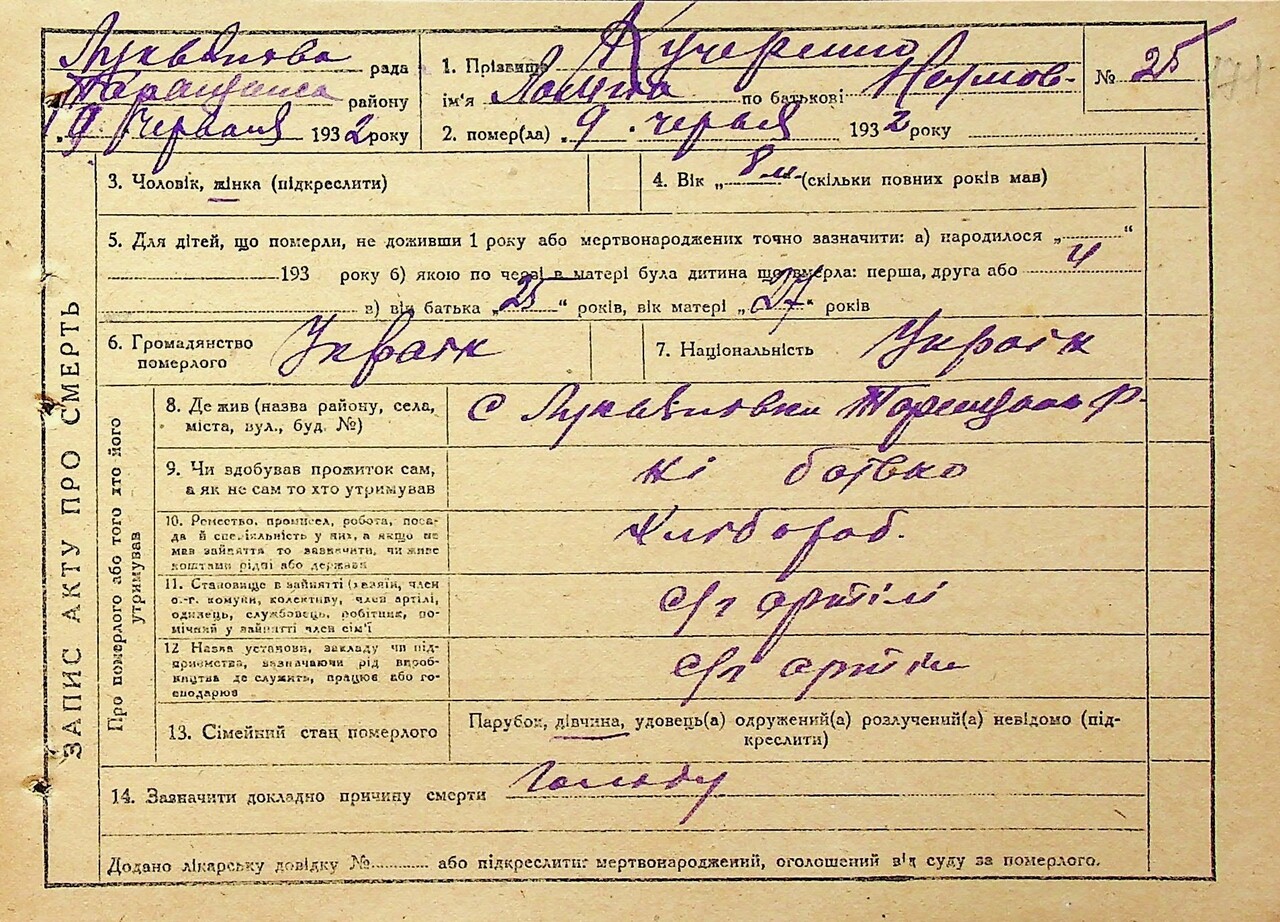 Лукьянова рада
Таращанськ району
9 червня 1932 року
1. Прізвище Кучеренко
ім'я по батькові Наумов-
2. помер(ла) „ 9 " червня 1932 року
№ 25
171
ЗАПИС АКТУ ПРО СМЕРТЬ
3. Чоловік, жінка (підкреслити)
4. Вік „ 8 м " (скільки повних років мав)
5. Для дітей, що померли, не доживши 1 року або мертвонароджених точно зазначити: а) народилося „ "
193 року б) якою по черзі в матері була дитина що вмерла: перша, друга або 4
в) вік батька „ 25 " років, вік матері „ 27 " років
6. Громадянство
померлого
7. Національність Україн
Про померлого або того хто його
утримував
8. Де жив (назва району, села,
міста, вул., буд. №)
с Лукьяновки Таращанськ р-
9. Чи здобував прожиток сам,
а як не сам то хто утримував
ні батько
10. Ремество, промисел, робота, поса-
да й спеціяльність у них, а якщо не
мав зайняття то зазначити, чи живе
коштами рідні або держави
хлібороб.
11. Становище в зайнятті (хазяїн, член
с.-г. комуни, колективу, член артілі,
одинець, службовець, робітник, по-
мічний у зайнятті член сім'ї
с/г артілі
12 Назва установи, закладу чи під-
приємства, зазначаючи рід вироб-
ництва де служить, працює або го-
сподарює
с/г артіли
13. Сімейний стан померлого
Парубок, дівчина, удовець(а) одружений(а) розлучений(а) невідомо (під-
креслити)
14. Зазначити докладно причину смерти Голоду
Додано лікарську довідку № або підкреслити: мертвонароджений, оголошений від суду за померлого.